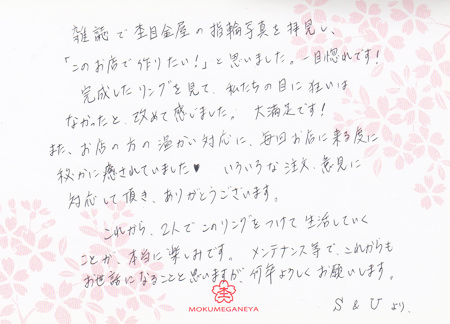 雑誌で杢目金屋の指輪写真を拝見し、
「このお店で作りたい！」と思いました。一目惚れです！
完成したリングを見て、私たちの目に狂いは
なかったと、改めて感じました。大満足です！
また、お店の方の温かい対応に、毎回お店に来る度に
秘かに癒されていました♥ いろいろな注文、意見に
対応して頂き、ありがとうございます。
これから、2人でこのリングをつけて生活していく
ことが、本当に楽しみです。メンテナンス等で、これからも
お世話になることと思いますが、何卒よろしくお願いします。
MOKUMEGANEYA
S & U より、